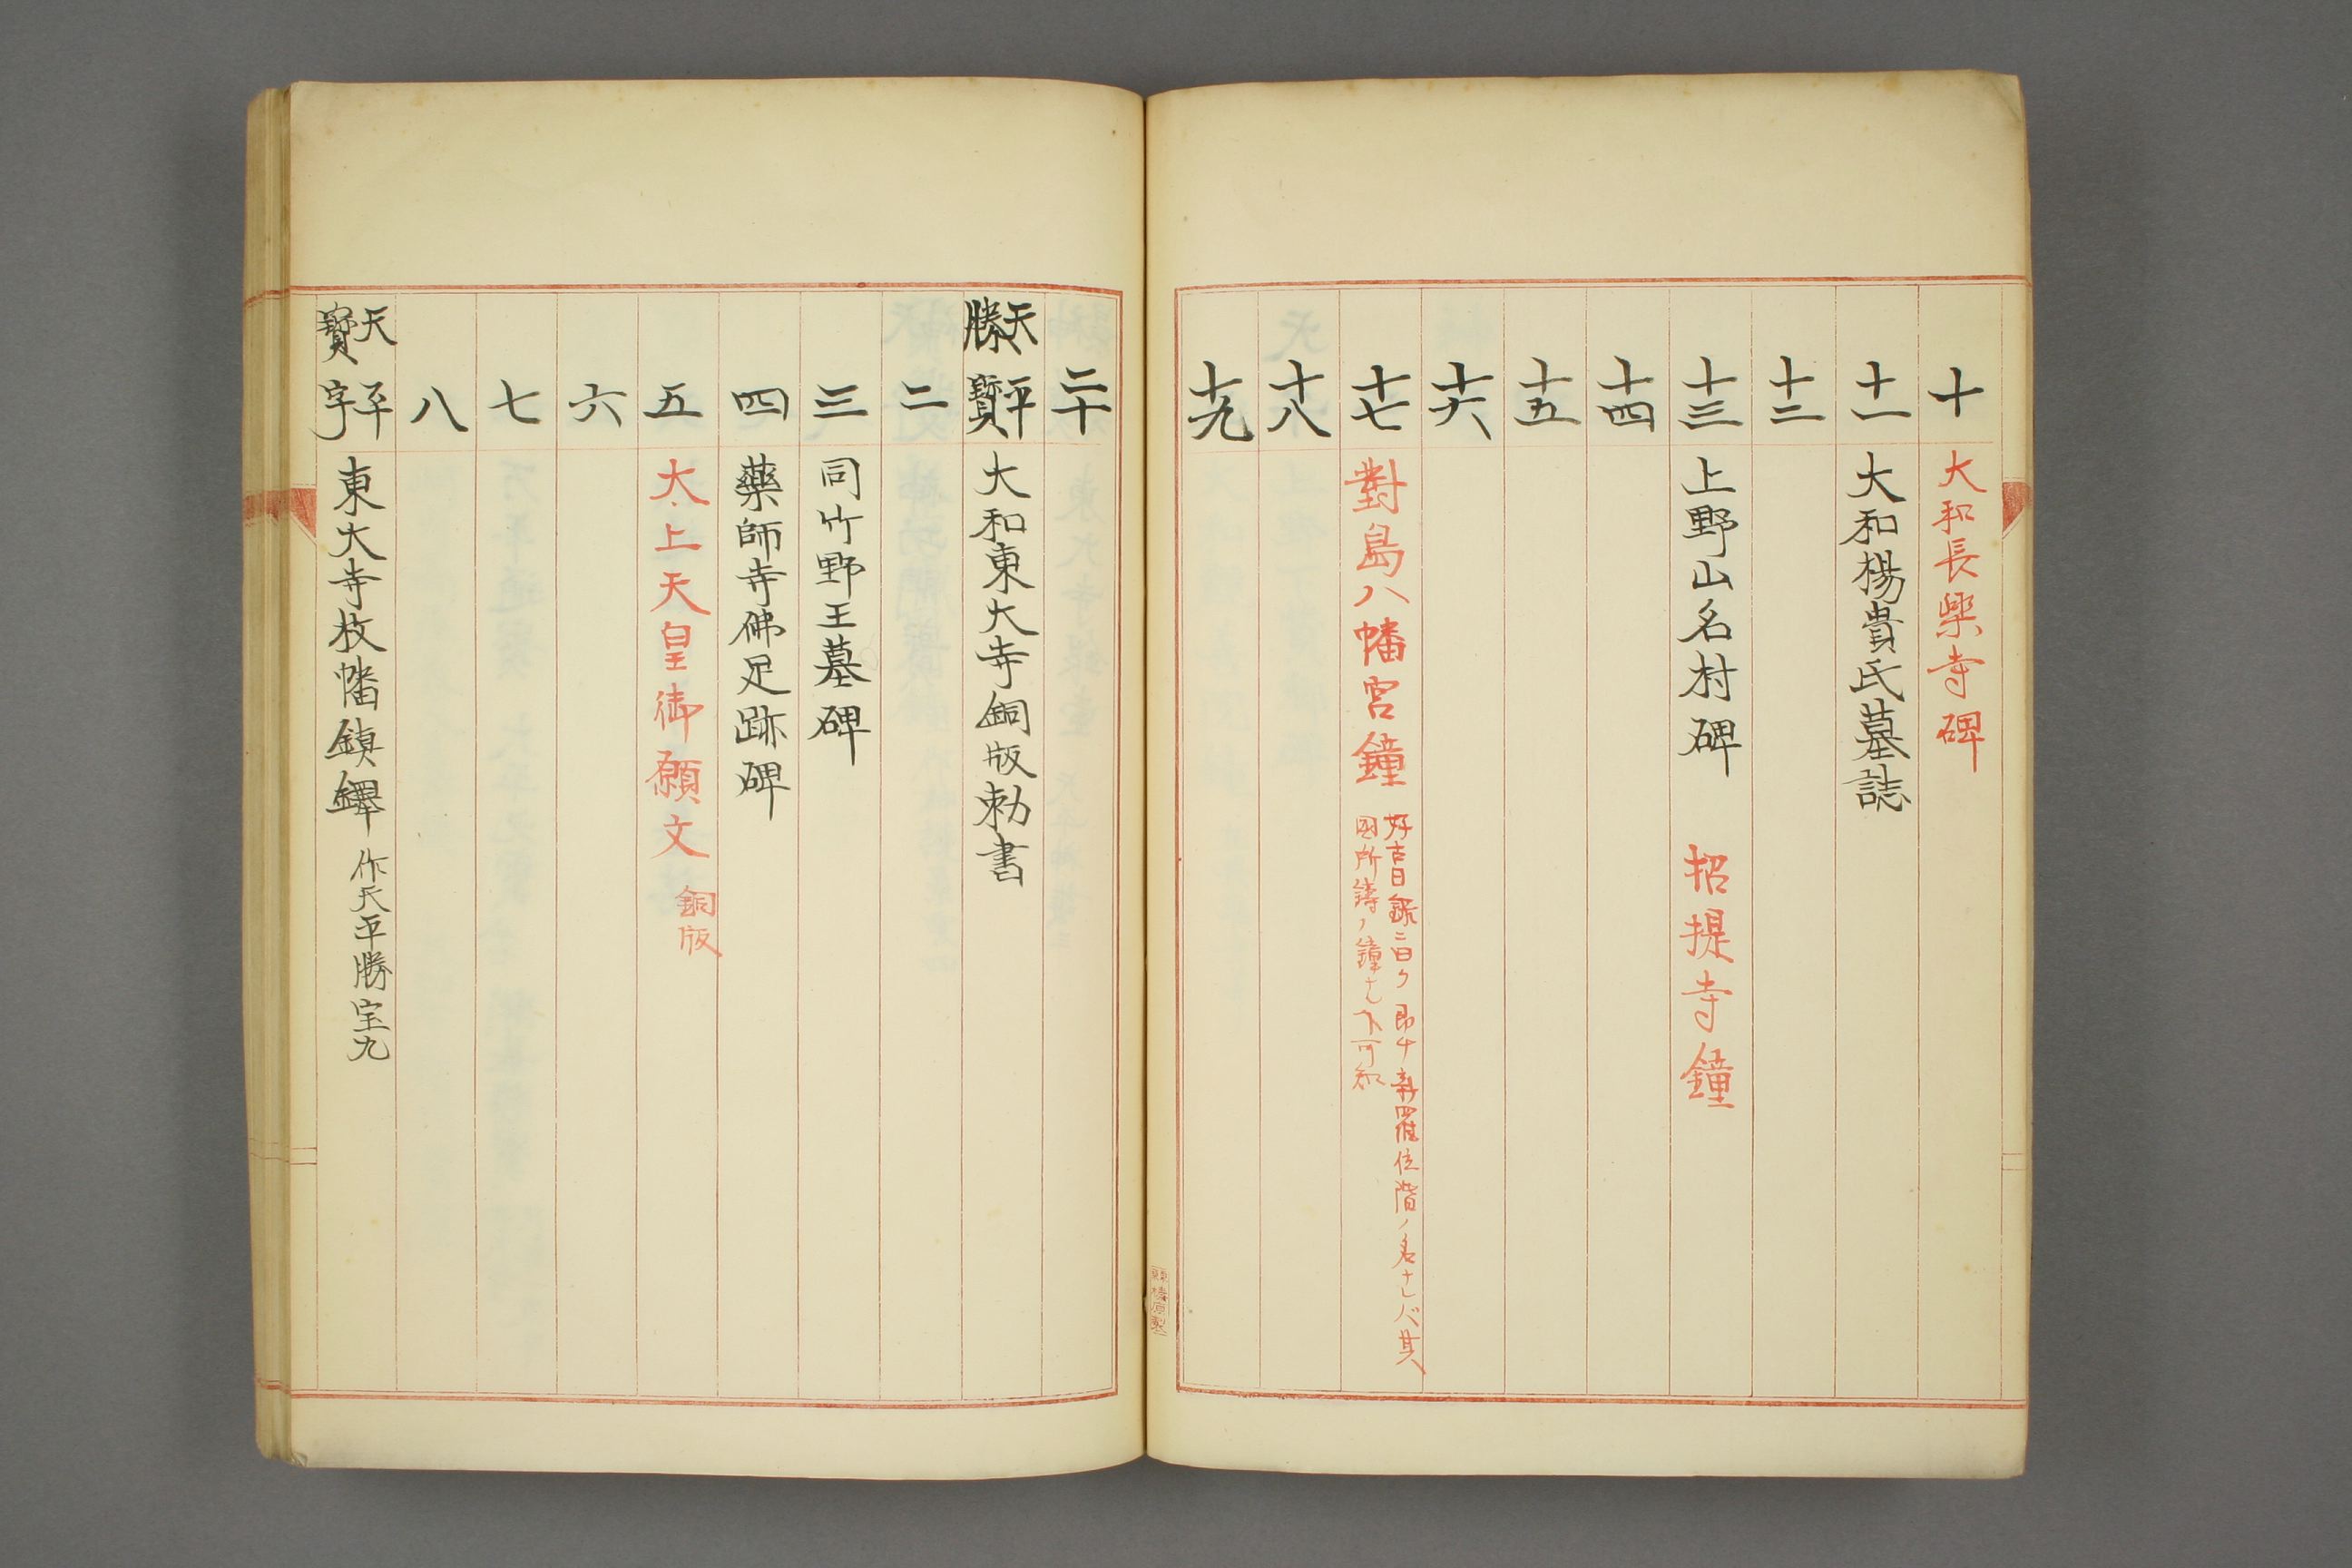 十 大和長樂寺碑
十一 大和楊貴氏墓誌
十二
十三 上野山名村碑 招提寺鐘
十四
十五
十六
十七 對島八幡宮鐘
好古日錄ニ曰ク即チ新羅位階ノ名ナレバ其
國所鑄ノ鐘ナル可知
十八
十九
二十
天平勝寶 大和東大寺銅版勅書
二
三 同竹野王墓碑
四 藥師寺佛足跡碑
五 太上天皇御願文 銅版
六
七
八
天平寶字 東大寺枚幡鎮鐸 作天平勝宝九
東京 榛原製